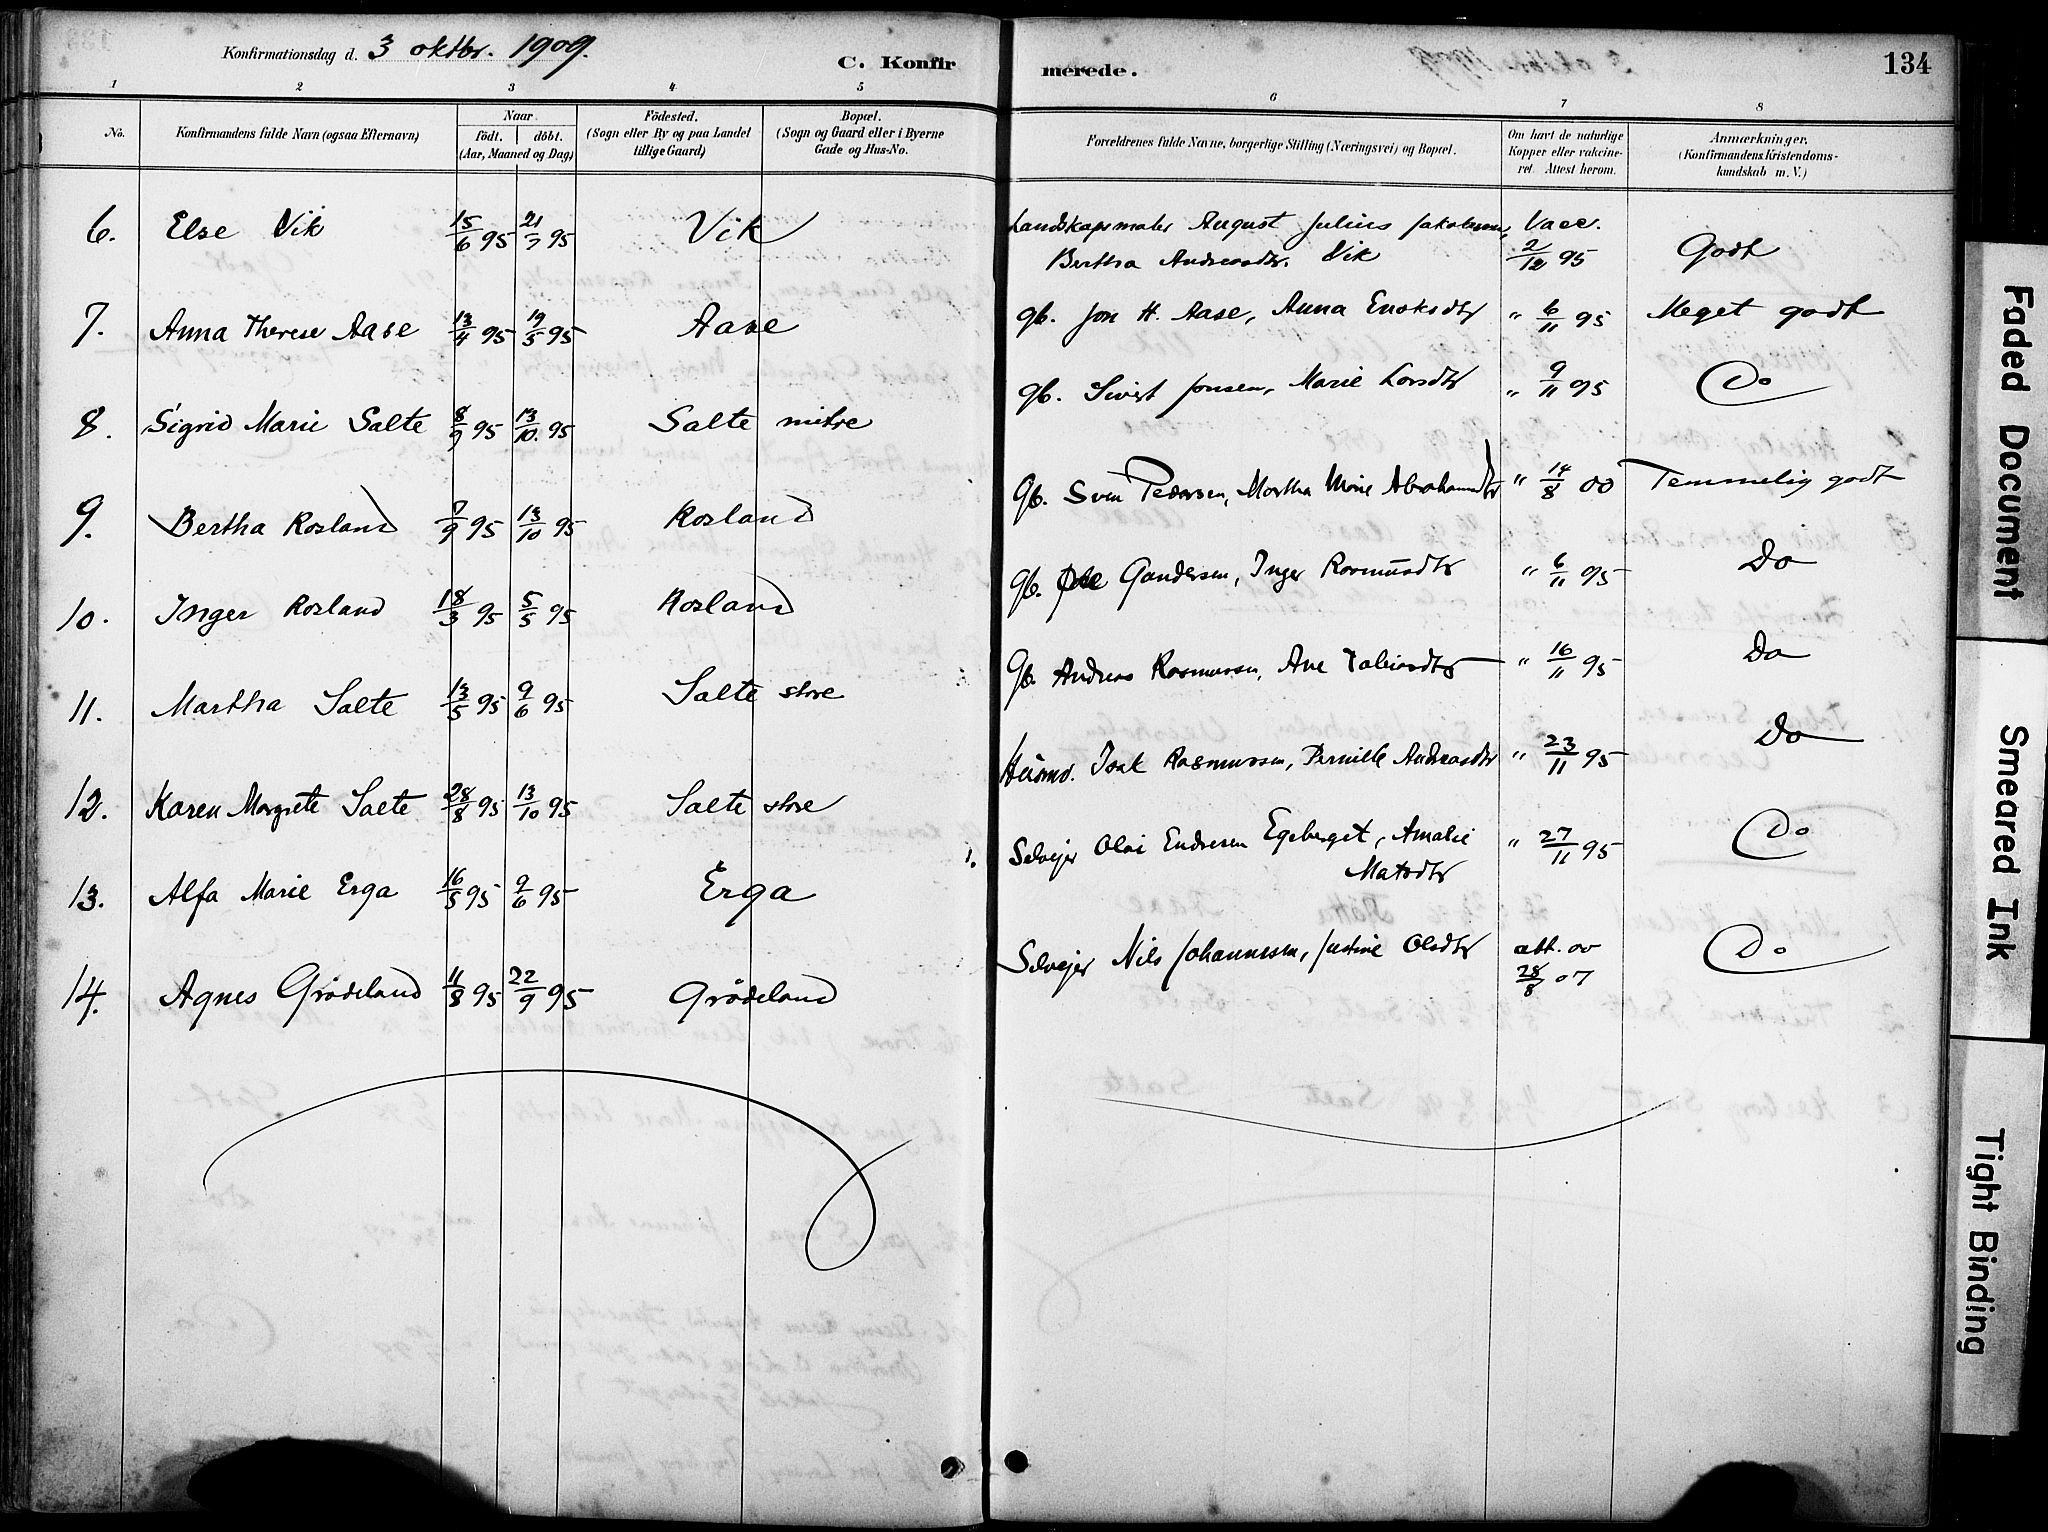 Konfirmationsdag d. 3 oktbr. 1909.
C. Konfirmerede.
134
1 2 3 4 5 6 7 8
No.
Konfirmandens fulde Navn (ogsaa Efternavn)
Naar
födt. döbt.
(Aar, Maaned og Dag)
Födested.
(Sogn eller By og paa Landet
tillige Gaard)
Bopæl.
(Sogn og Gaard eller i Byerne
Gade og Hus-No.
Forældrenes fulde Navne, borgerlige Stilling (Næringsvei) og Bopæl.
Om havt de naturlige
Kopper eller vakcine-
ret. Attest herom.
Anmærkninger.
(Konfirmandens Kristendoms-
kundskab m. V.)
6. Else Vik 15/6 95 21/7 95 Vik Landskapsmaler August Julius Jakobsen, Vacc.
Bertha Andreasdtr. Vik 2/12 95 Godt
7. Anna Therese Aase 13/4 95 19/5 95 Aase gb. Jon H. Aase, Anna Enoksdtr " 6/11 95 Meget godt
8. Sigrid Marie Salte 8/9 95 13/10. 95 Salte mitre gb. Sivert Jonsen, Marie Larsdtr " 9/11 95 Do
9. Bertha Rosland 7/9 95 13/10 95 Rosland gb. Sven Pedersen, Martha Marie Abrahamsdtr " 14/8 00 Temmelig godt
10. Inger Rosland 18/3 95 5/5 95 Rosland gb. Ole Gundersen, Inger Rasmusdtr " 6/11 95 Do
11. Martha Salte 13/5 95 9/6 95 Salte store gb. Andreas Rasmussen, Ane Tobiasdtr " 16/11 95 Do
12. Karen Margrete Salte 28/8 95 13/10 95 Salte store Husmd. Isak Rasmussen, Pernille Andreasdtr " 23/11 95 Do
13. Alfa Marie Erga 16/5 95 9/6 95 Erga Selvejer Olai Endresen Egeberget, Amalie
Matsdtr " 27/11 95 Do
14. Agnes Grödeland 11/8 95 22/9 95 Grödeland Selvejer Nils Johannessen, Justine Olsdtr att. ov
28/8 07 Do
Faded Document
Smeared Ink
Tight Binding